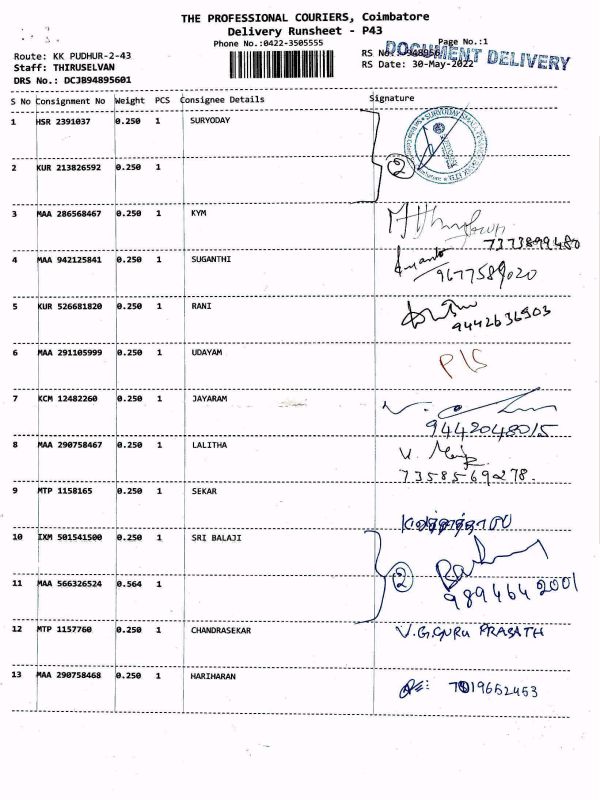 THE PROFESSIONAL COURIERS, Coimbatore
Delivery Runsheet - P43
Phone No.:0422-3505555
Page No.:1
Route: KK PUDHUR-2-43
RS No.:
DOCUMENT DELIVERY
Staff: THIRUSELVAN
RS Date: 30-May-2022
DRS No.: DCJB94895601
S No Consignment No Weight PCS Consignee Details Signature
1 HSR 2391037 0.250 1 SURYODAY
2 KUR 213826592 0.250 1
2
3 MAA 286568467 0.250 1 KYM
7373899480
4 MAA 942125841 0.250 1 SUGANTHI
9677589020
5 KUR 526681820 0.250 1 RANI
9442636903
6 MAA 291105999 0.250 1 UDAYAM
7 KCM 12482260 0.250 1 JAYARAM
9442048015
8 MAA 290758467 0.250 1 LALITHA
7358569278.
9 MTP 1158165 0.250 1 SEKAR
10 IXM 501541500 0.250 1 SRI BALAJI
11 MAA 566326524 0.564 1
2
9894642001
12 MTP 1157760 0.250 1 CHANDRASEKAR V.G.GURU PRASATH
13 MAA 290758468 0.250 1 HARIHARAN